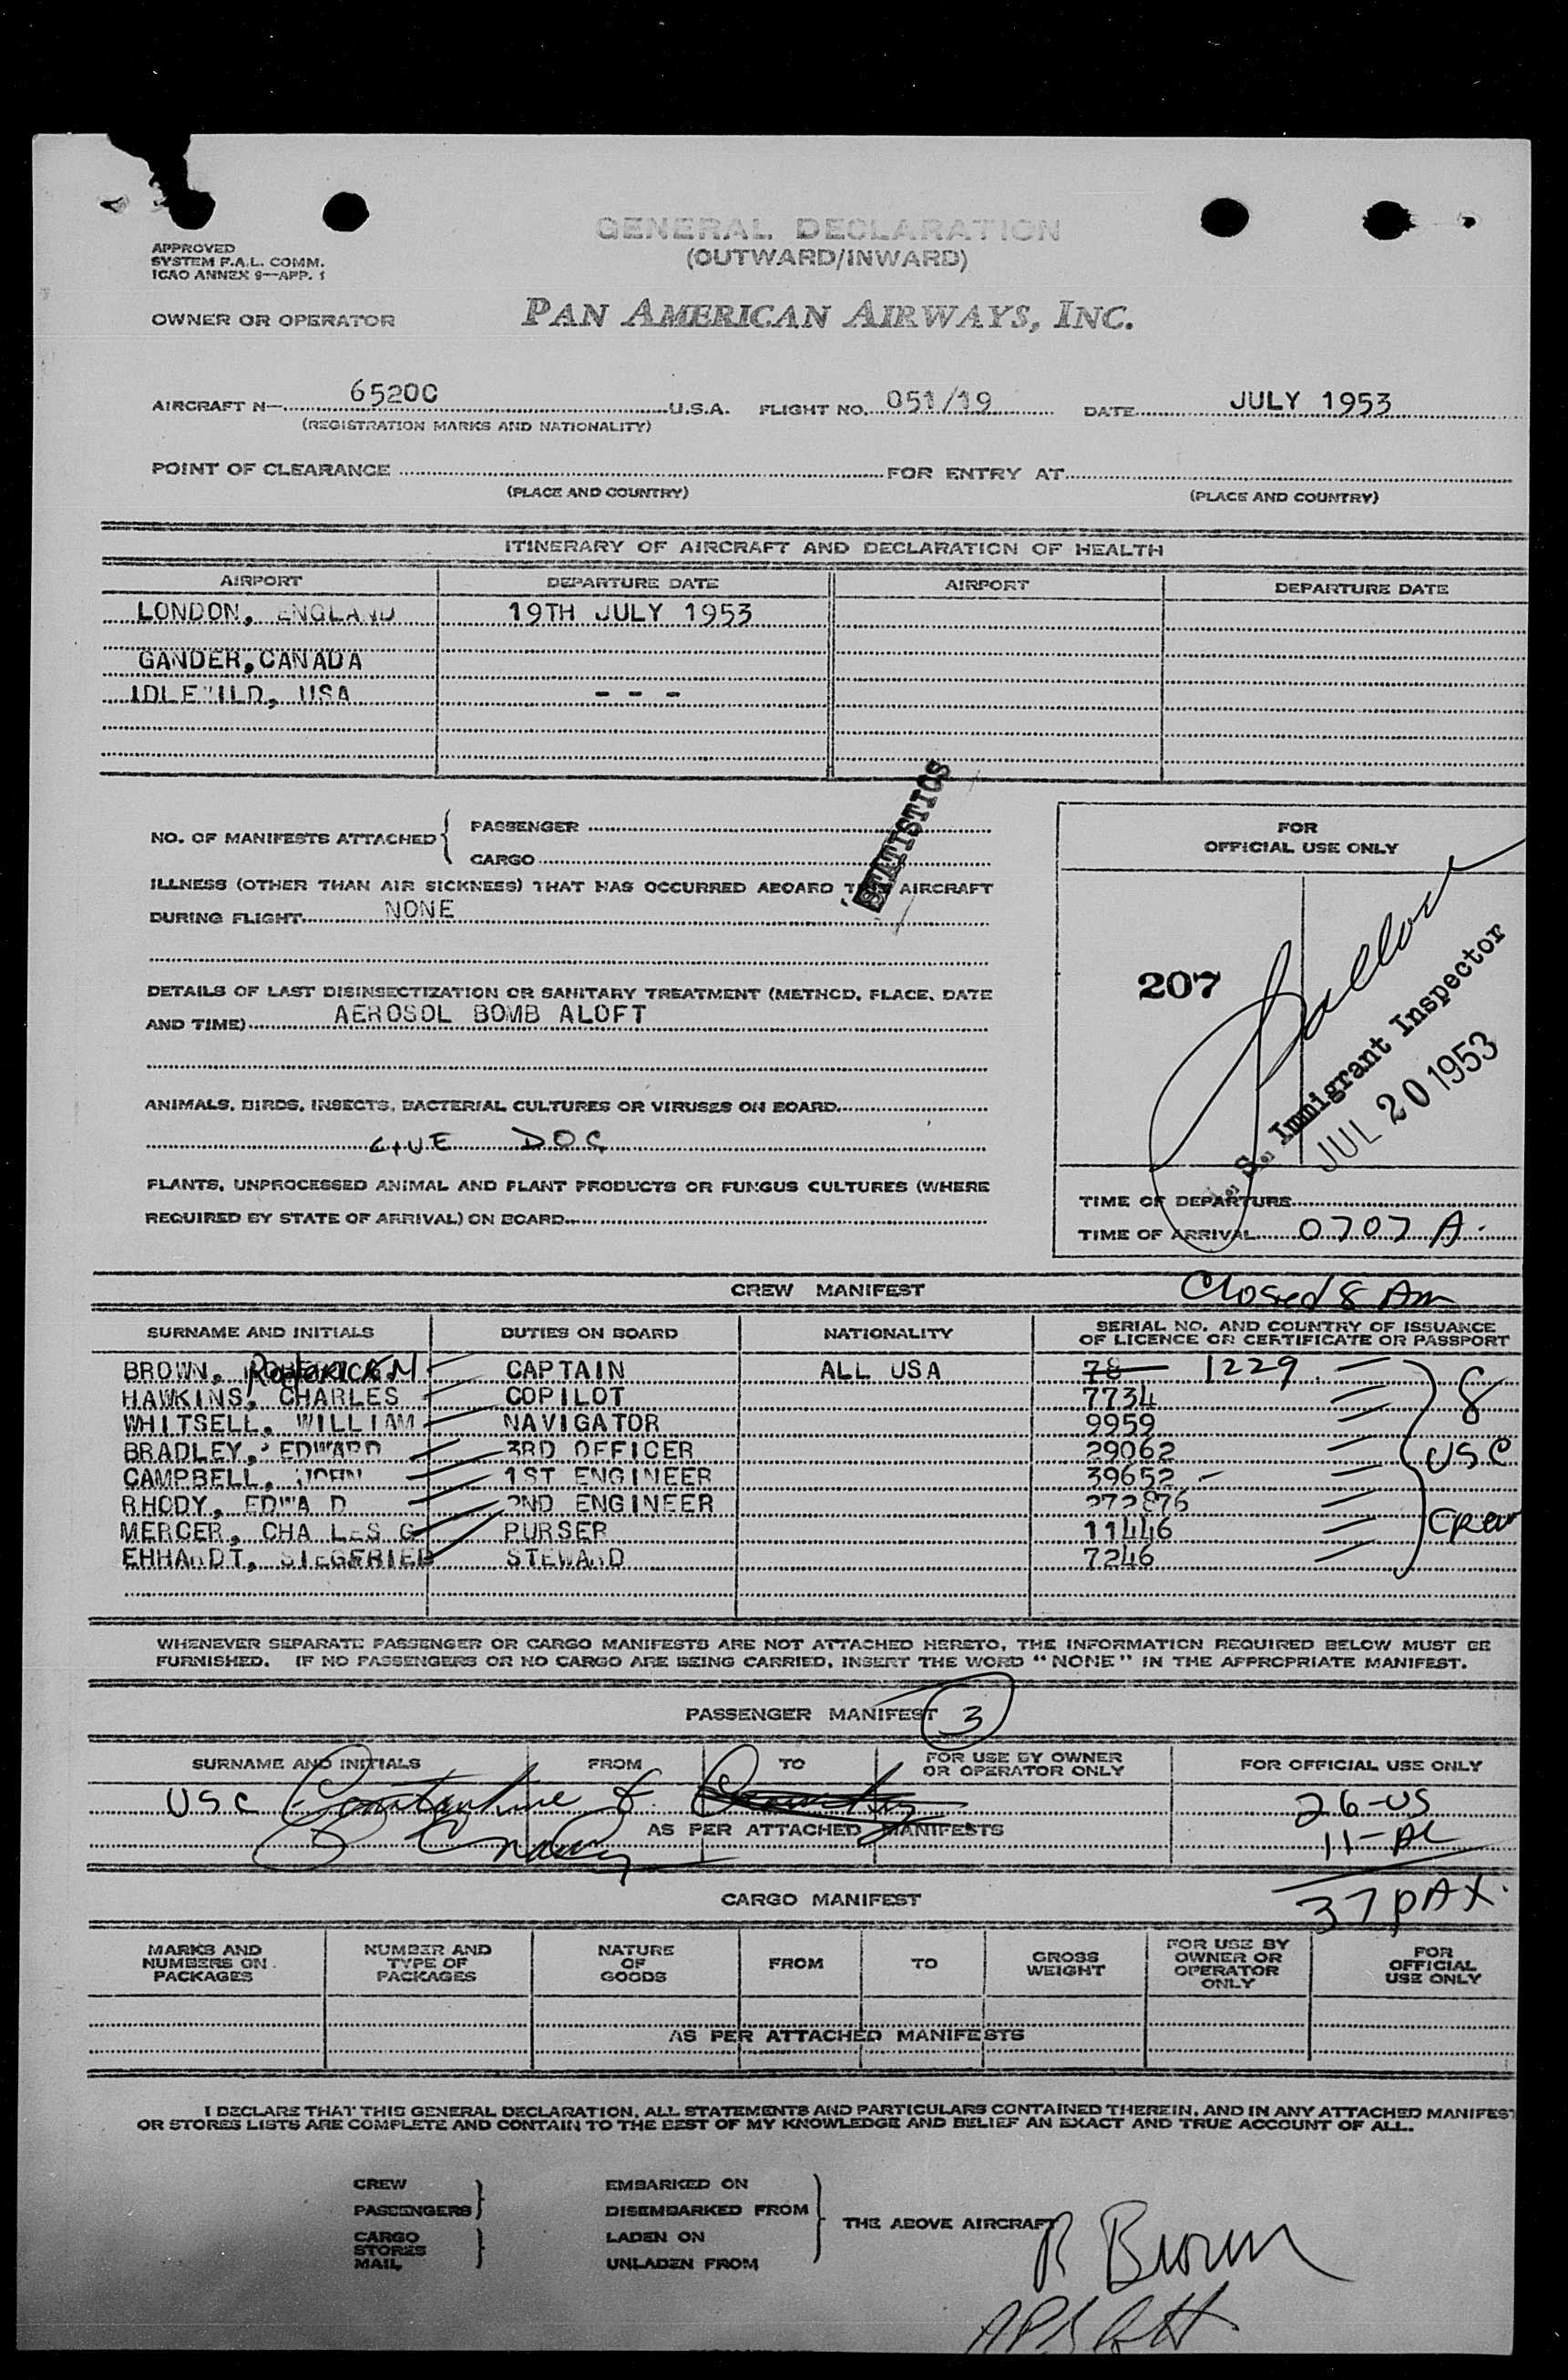 GENERAL DECLARATION
(OUTWARD/INWARD)
APPROVED
SYSTEM F.A.L. COMM.
ICAO ANNEX 9—APP. 1
OWNER OR OPERATOR PAN AMERICAN AIRWAYS, INC.
AIRCRAFT N— 6520C U.S.A. FLIGHT NO. 051/19 DATE JULY 1953
(REGISTRATION MARKS AND NATIONALITY)
POINT OF CLEARANCE FOR ENTRY AT
(PLACE AND COUNTRY) (PLACE AND COUNTRY)
ITINERARY OF AIRCRAFT AND DECLARATION OF HEALTH
AIRPORT DEPARTURE DATE AIRPORT DEPARTURE DATE
LONDON, ENGLAND 19TH JULY 1953
GANDER, CANADA
IDLEWILD, USA - - -
STATISTICS
NO. OF MANIFESTS ATTACHED { PASSENGER
CARGO
FOR
OFFICIAL USE ONLY
ILLNESS (OTHER THAN AIR SICKNESS) THAT HAS OCCURRED ABOARD AIRCRAFT
DURING FLIGHT NONE
207
DETAILS OF LAST DISINSECTIZATION OR SANITARY TREATMENT (METHOD, PLACE, DATE
AND TIME) AEROSOL BOMB ALOFT
S. Immigrant Inspector
JUL 20 1953
ANIMALS, BIRDS, INSECTS, BACTERIAL CULTURES OR VIRUSES ON BOARD
LIVE DOG
PLANTS, UNPROCESSED ANIMAL AND PLANT PRODUCTS OR FUNGUS CULTURES (WHERE
REQUIRED BY STATE OF ARRIVAL) ON BOARD
TIME OF DEPARTURE
TIME OF ARRIVAL 0707 A.
CREW MANIFEST Closed 8 Am
SURNAME AND INITIALS DUTIES ON BOARD NATIONALITY SERIAL NO. AND COUNTRY OF ISSUANCE
OF LICENCE OR CERTIFICATE OR PASSPORT
BROWN, RODERICK M CAPTAIN ALL USA 78 1229
HAWKINS, CHARLES COPILOT 7734 8
WHITSELL, WILLIAM NAVIGATOR 9959
BRADLEY, EDWARD 3RD OFFICER 29062 USC
CAMPBELL, JOHN 1ST ENGINEER 39652
RHODY, EDWA D 2ND ENGINEER 272876
MERCER, CHA LES G PURSER 11446 Crew
EHHARDT, SIEGFRIED STEWARD 7246
WHENEVER SEPARATE PASSENGER OR CARGO MANIFESTS ARE NOT ATTACHED HERETO, THE INFORMATION REQUIRED BELOW MUST BE
FURNISHED. IF NO PASSENGERS OR NO CARGO ARE BEING CARRIED, INSERT THE WORD "NONE" IN THE APPROPRIATE MANIFEST.
PASSENGER MANIFEST 3
SURNAME AND INITIALS FROM TO FOR USE BY OWNER
OR OPERATOR ONLY FOR OFFICIAL USE ONLY
USC Constantine 26-US
AS PER ATTACHED MANIFESTS 11-AL
CARGO MANIFEST 37 PAX.
MARKS AND
NUMBERS ON
PACKAGES
NUMBER AND
TYPE OF
PACKAGES
NATURE
OF
GOODS
FROM
TO
GROSS
WEIGHT
FOR USE BY
OWNER OR
OPERATOR
ONLY
FOR
OFFICIAL
USE ONLY
AS PER ATTACHED MANIFESTS
I DECLARE THAT THIS GENERAL DECLARATION, ALL STATEMENTS AND PARTICULARS CONTAINED THEREIN, AND IN ANY ATTACHED MANIFEST
OR STORES LISTS ARE COMPLETE AND CONTAIN TO THE BEST OF MY KNOWLEDGE AND BELIEF AN EXACT AND TRUE ACCOUNT OF ALL.
CREW EMBARKED ON
PASSENGERS DISEMBARKED FROM
THE ABOVE AIRCRAFT
CARGO LADEN ON
STORES
MAIL UNLADEN FROM
R Brown